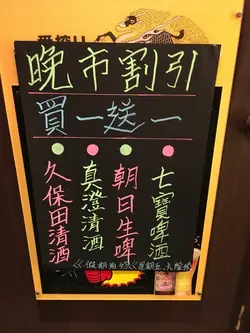 晚市割引
買一送一
七寶啤酒
朝日生啤
真澄清酒
久保田清酒